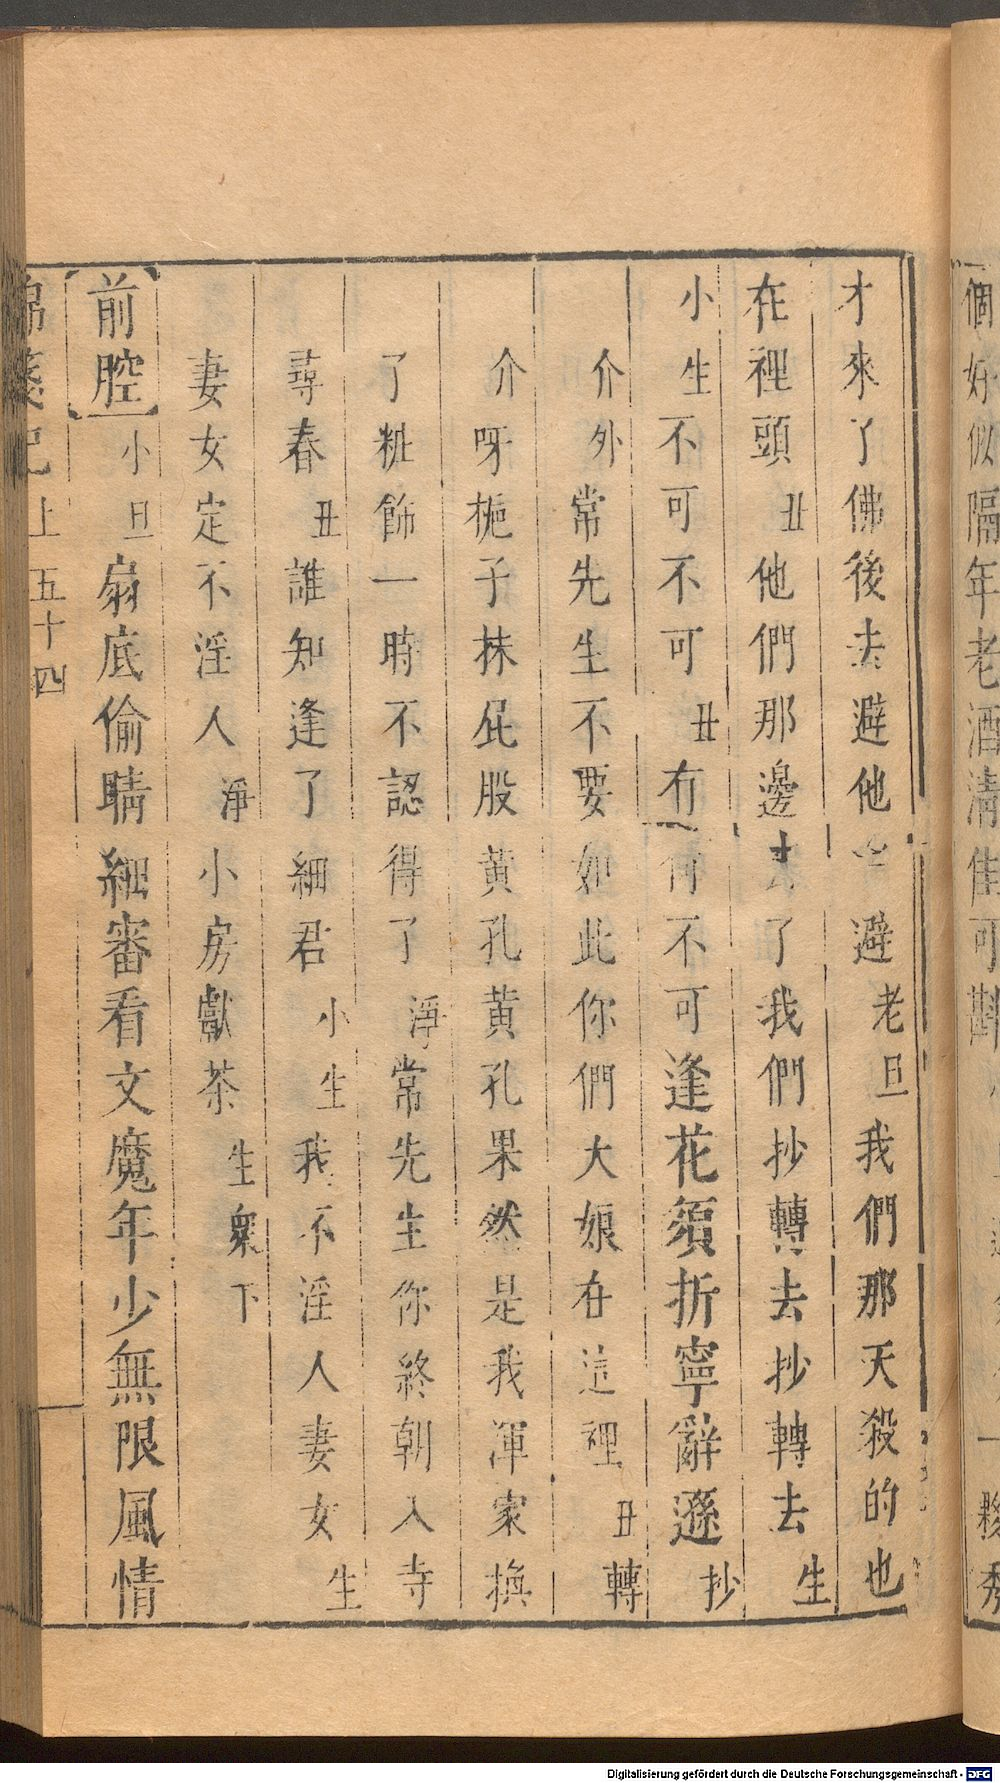 才來了佛後去避他避老旦我們那天殺的也
在裡頭丑他們那邊來了我們抄轉去抄轉去生
小生不可不可丑有何不可逢花須折寧辭遜抄
介外常先生不要如此你們大娘在這裡丑轉
介呀梔子抹屁股黃孔黃孔果然是我渾家換
了粧飾一時不認得了淨常先生你終朝入寺
尋春丑誰知逢了細君小生我不淫人妻女生
妻女定不淫人淨小房獻茶生衆下
【前腔】小旦扇底偷睛細審看文魔年少無限風情
錦箋記上五十四
個好似隔年老酒清佳可斟
Digitalisierung gefördert durch die Deutsche Forschungsgemeinschaft - DFG